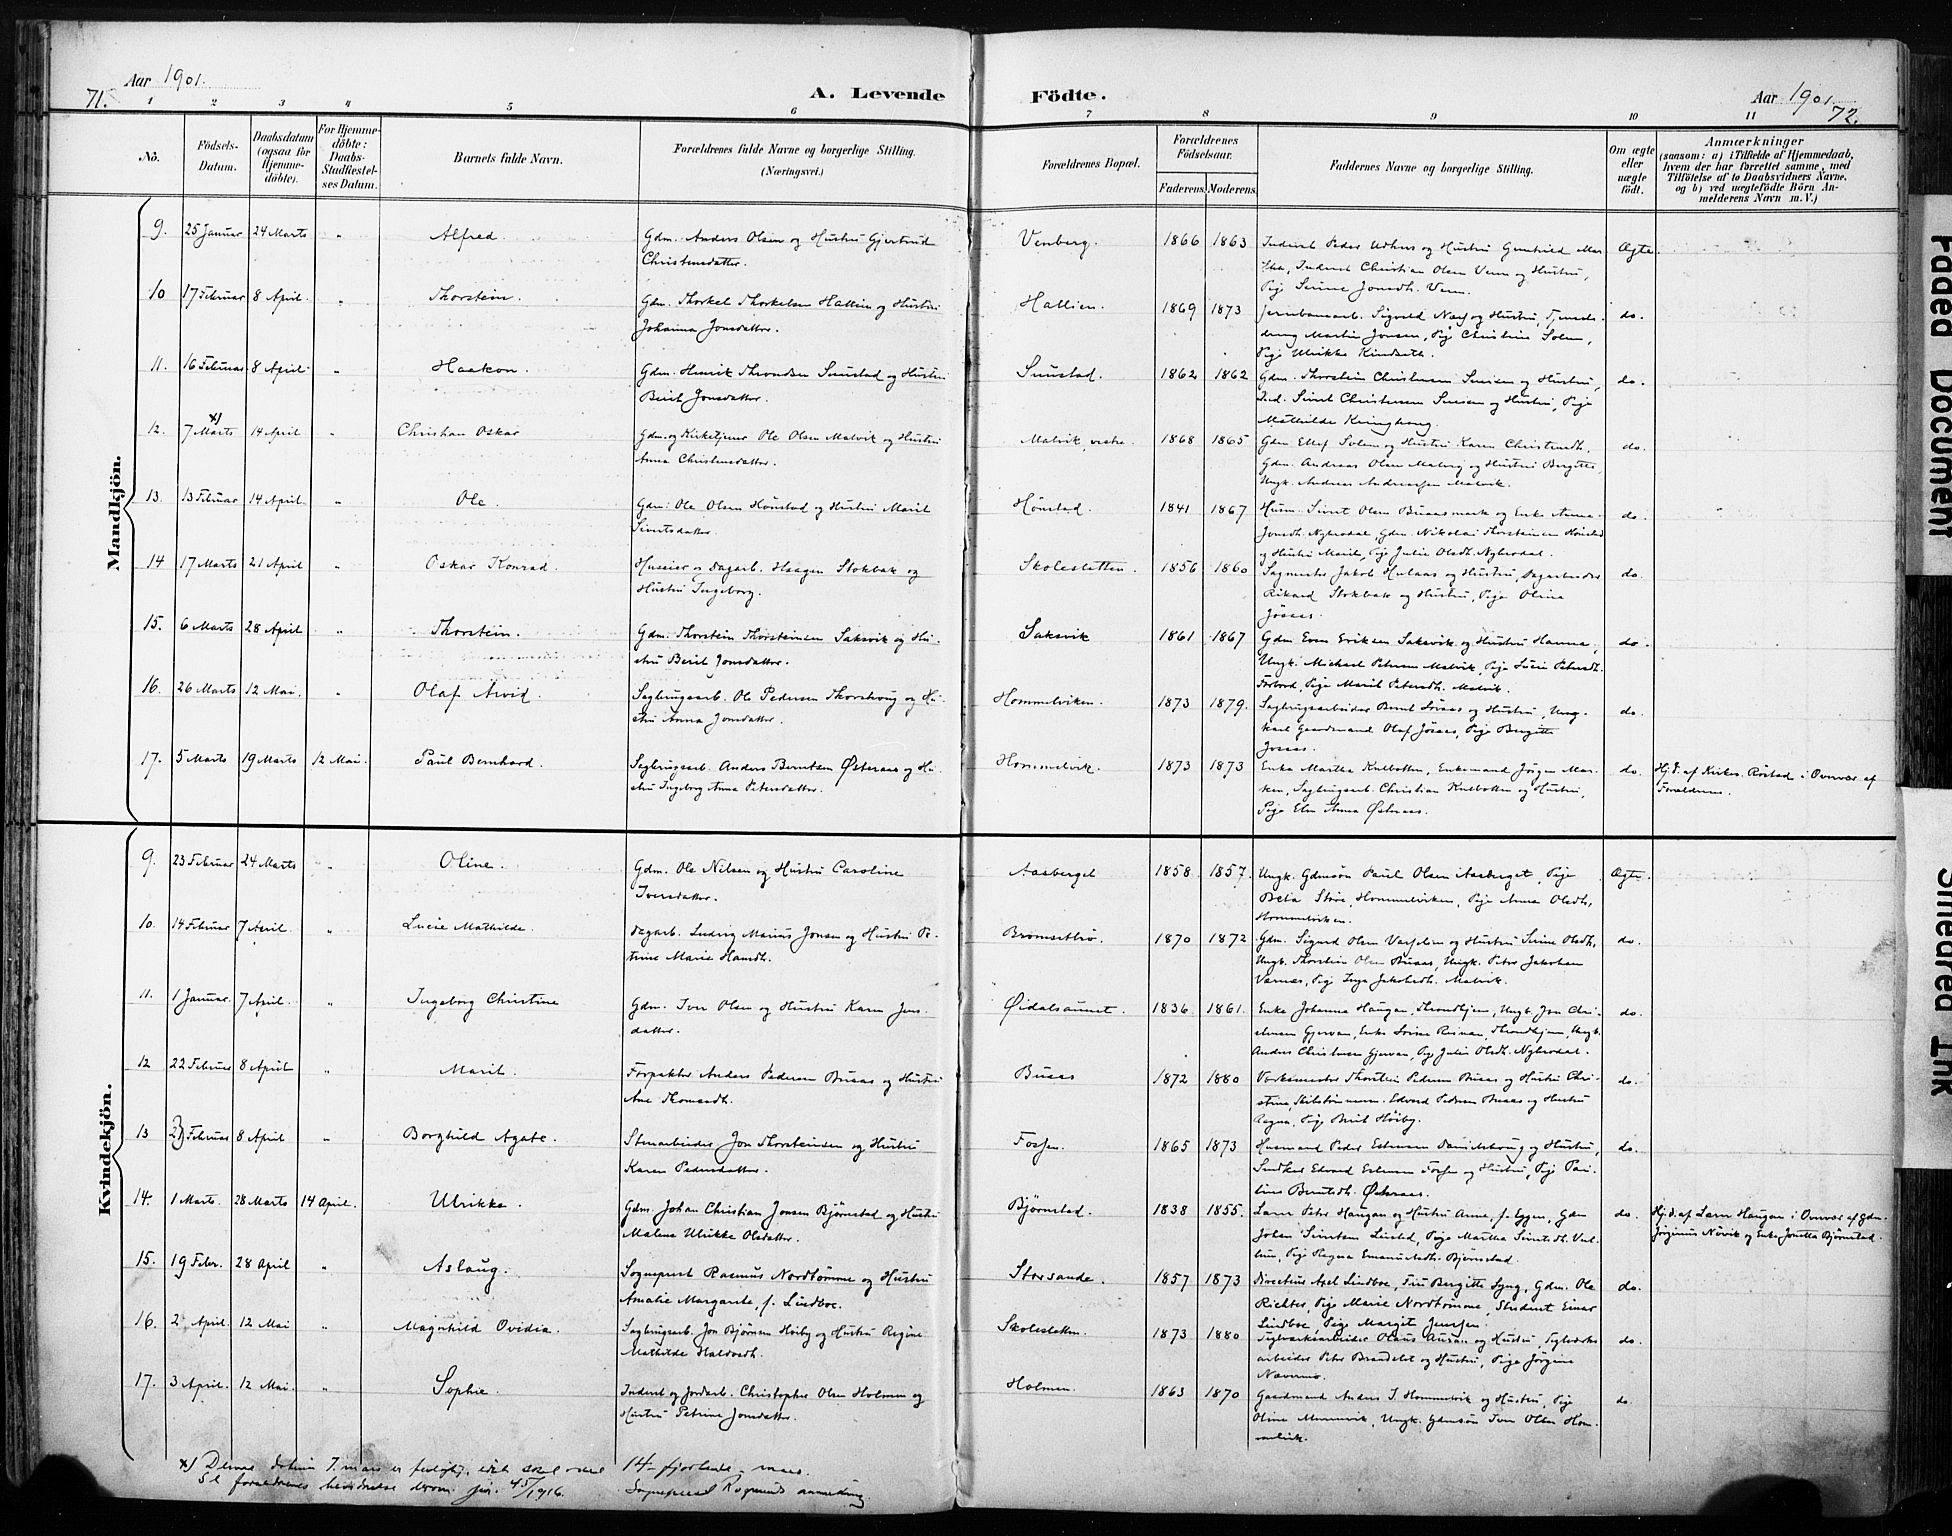 Aar 1901.
71.
A. Levende Födte.
Aar 1901.
72.
1 2 3 4 5 6 7 8 9 10 11
No. Födsels-Datum. Daabsdatum (ogsaa for Hjemme-döbte). For Hjemme-döbte: Daabs-Stadfæstelses Datum. Barnets fulde Navn. Forældrenes fulde Navne og borgerlige Stilling. (Næringsvei.) Forældrenes Bopæl. Forældrenes Födselsaar. Faderens. Moderens. Faddernes Navne og borgerlige Stilling. Om ægte eller uægte födt. Anmærkninger (saasom: a) i Tilfælde af Hjemmedaab, hvem der har forrettet samme, med Tilföielse af to Daabsvidners Navne, og b) ved uægtefödte Börn Anmelderens Navn m. V.)
Mandkjön.
9. 25 Januar 24 Marts " Alfred. Gdm. Anders Olsen og Hustru Gjertrud Venberg. 1866 1863 Inderst Peder Udhus og Hustru Gunhild Mar- Ægte.
Christensdatter. tha, Inderst Christian Olsen Venn og Hustru,
Pige Serine Jonsdh. Venn.
10 17 Februar 8 April. " Thorstein. Gdm. Thorkel Thorkelsen Hallien og Hustru Hallien. 1869 1873 Jernbanearb. Sigvald Næss og Hustru, Tjeneste- do.
Johanna Jonsdatter. dreng Martin Jonsen, Pige Christine Solem,
Pige Ulrikke Kindseth.
11. 16 Februar 8 April " Haakon. Gdm. Henrik Throndsen Smustad og Hustru 1862 1862 Gdm. Thorstein Christensen og Hustru, do.
Berit Jonsdatter. Ind. Sivert Christensen og Hustru, Pige
Mathilde
12. 7 Marts x) 14 April " Christian Oskar Gdm. og Kirketjener Ole Olsen Malvik og Hustru Malvik vestre. 1868 1865 Gdm Ellef Solem og Hustru Karen Christensdh. do.
Anna Christensdatter. Gdm. Andreas Olsen Malvig og Hustru Bergitte,
Ungk. Andreas Andreassen Malvik.
13. 13 Februar 14 April " Ole. Gdm. Ole Olsen Hønstad og Hustru Marit Hønstad. 1841 1867 Husm. Sivert Olsen Buaasmark og Enke Anne do.
Sivertsdatter. Jonsdh. Nyhrodal, Gdm. Nikolai Thorsteinsen Hønstad
og Hustru Marit, Pige Julie Olsdh. Nyhrodal.
14 17 Marts 21 April " Oskar Konrad. Husseier og Dagarb. Haagen Stokbak og Skolesletten. 1856 1860 Sagmester Jakob og Hustru, Dagarbeider do.
Hustru Ingeborg. Rikard Stokbak og Hustru, Pige Olina
Jøsaas.
15. 6 Marts 28 April " Thorstein. Gdm. Thorstein Thorsteinsen Saksvik og Hu- Saksvik 1861 1867 Gdm Even Eriksen Saksvik og Hustru Hanna, do.
stru Berit Jonsdatter. Ungk. Michael Petersen Malvik, Pige Petersdh.
Forbord, Pige Marit Petersdh. Malvik.
16. 26 Marts 12 Mai. " Olaf Arvid. Sagbrugsarb. Ole Pedersen Thorshaug og Hu- Hommelviken. 1873 1879. Sagbrugsarbeider Bernt og Hustru, Ung- do.
stru Anna Jonsdatter. karl Gaardmand Olaf Jøsaas, Pige Bergitte
Jøsaas.
17. 5 Marts 19 Marts 12 Mai. Paul Bernhard. Sagbrugsarb. Anders Berntsen Østeraas og Hu- Hommelvik. 1873 1873 Enke Martha Kulbotten, Enkemand Jørgen Mar- do. Hj.d. af Kirkes. Røstad i Overvær af
stru Ingeborg Anna Petersdatter. ken, Sagbrugsarb. Christian Kulbotten og Hustru, Forældrene.
Pige Elen Anna Østeraas.
Kvindekjön.
9. 23 Februar 24 Marts " Oline. Gdm. Ole Nilsen og Hustru Caroline Aasberget 1858 1857. Ungk. Gdmsøn Paul Olsen Aasberget, Pige Ægte.
Iversdatter. Beta Støre, Hommelviken, Pige Anna Olsdh.
Hommelviken.
10. 14 Februar 7 April. " Lucie Mathilde. Dagarb. Ludvig Marius Jonsen og Hustru Pe- Brømsetbrø. 1870 1872 Gdm. Sigurd Olsen og Hustru Serine Olsdh. do.
trine Marie Hansdh. Ungk. Thorstein Olsen Buaas, Ungk. Peter Jakobsen
Værnes, Pige Inga Jakobsdh. Malvik.
11. 1 Januar. 7 April. " Ingeborg Christine Gdm. Iver Olsen og Hustru Karen Jens- Øidalsaunet. 1836 1861. Enke Johanna Haugan, Throndhjem, Ungk. Jon Chri- do.
datter. stensen Gjervan, Enke Throndhjem, Ungk.
Anders Christensen Gjervan, Pige Julie Olsdh. Nyhrodal.
12 22 Februar 8 April " Marit. Forpakter Anders Pedersen Buaas og Hustru Buaas 1872 1880 Værksmester Thorstein Pedersen Buaas og Hustru Chri- do.
Ane Thomasdh. stina, Edvard Pedersen Buaas og Hustru
Ragna, Pige Berit Høiby.
13 23 Februar 8 April " Borghild Agate. Stenarbeider Jon Thorsteinsen og Hustru Fossen. 1865 1873 Husmand Peder Estensen og Hustru, do.
Karen Pedersdatter. Edvard Estensen Fossen og Hustru, Pige Pau-
line Berntsdh. Østeraas.
14. 1 Marts. 28 Marts 14 April. Ulrikke. Gdm. Johan Christian Jonsen Bjørnstad og Hustru Bjørnstad. 1838 1855. Lærer Peter Haugan og Hustru Anne f. Eggen, Gdm do. Hj.d. af Lærer Haugan i Overvær af Gdm.
Malene Ulrikke Olsdatter. Johan Sivertsen Pige Martha Sivertsdh. Jørginus Növik og Enke Jonetta Bjørnstad.
Pige Ragna Emanuelsdh. Bjørnstad.
15. 19 Febr. 28 April " Aslaug. Sogneprest Rasmus Nordtømme og Hustru Storsande. 1857 1873 Directeur Axel Lindboe, Fru Bergitte Lyng, Gdm. Ole do.
Amalie Margarete, f. Lindboe. Richter, Pige Marie Nordtømme, Student Einar
Lindboe, Pige Margit Jenssen.
16. 2 April. 12 Mai " Magnhild Ovidia. Sagbrugsarb. Jon Bjørnsen Høiby og Hustru Regine Skolesletten. 1873 1880 Teglværksarbeider Olaus Auran og Hustru, Teglværks- do.
Mathilde Haldosdh. arbeider Peter Brandslet og Hustru, Pige Jørgine
Nævermo.
17. 3 April. 12 Mai. " Sophie. Inderst og Jordarb. Christopher Olsen Holmen og Holmen. 1863 1870 Gaardmand Anders J. Hommelvik og Hustru, Pige do.
Hustru Petrine Jonsdatter. Oline Murunvik, Ungk. Gdmsøn Iver Olsen Hom-
melvik.
x) Denne datum 7. mars er feilagtig, idet skal være 14 - fjortende - mars.
forældrenes henvendelse derom. jnr. 45/1916. Sogneprest Rognmos anmerkning.
Faded Document
Smeared Ink